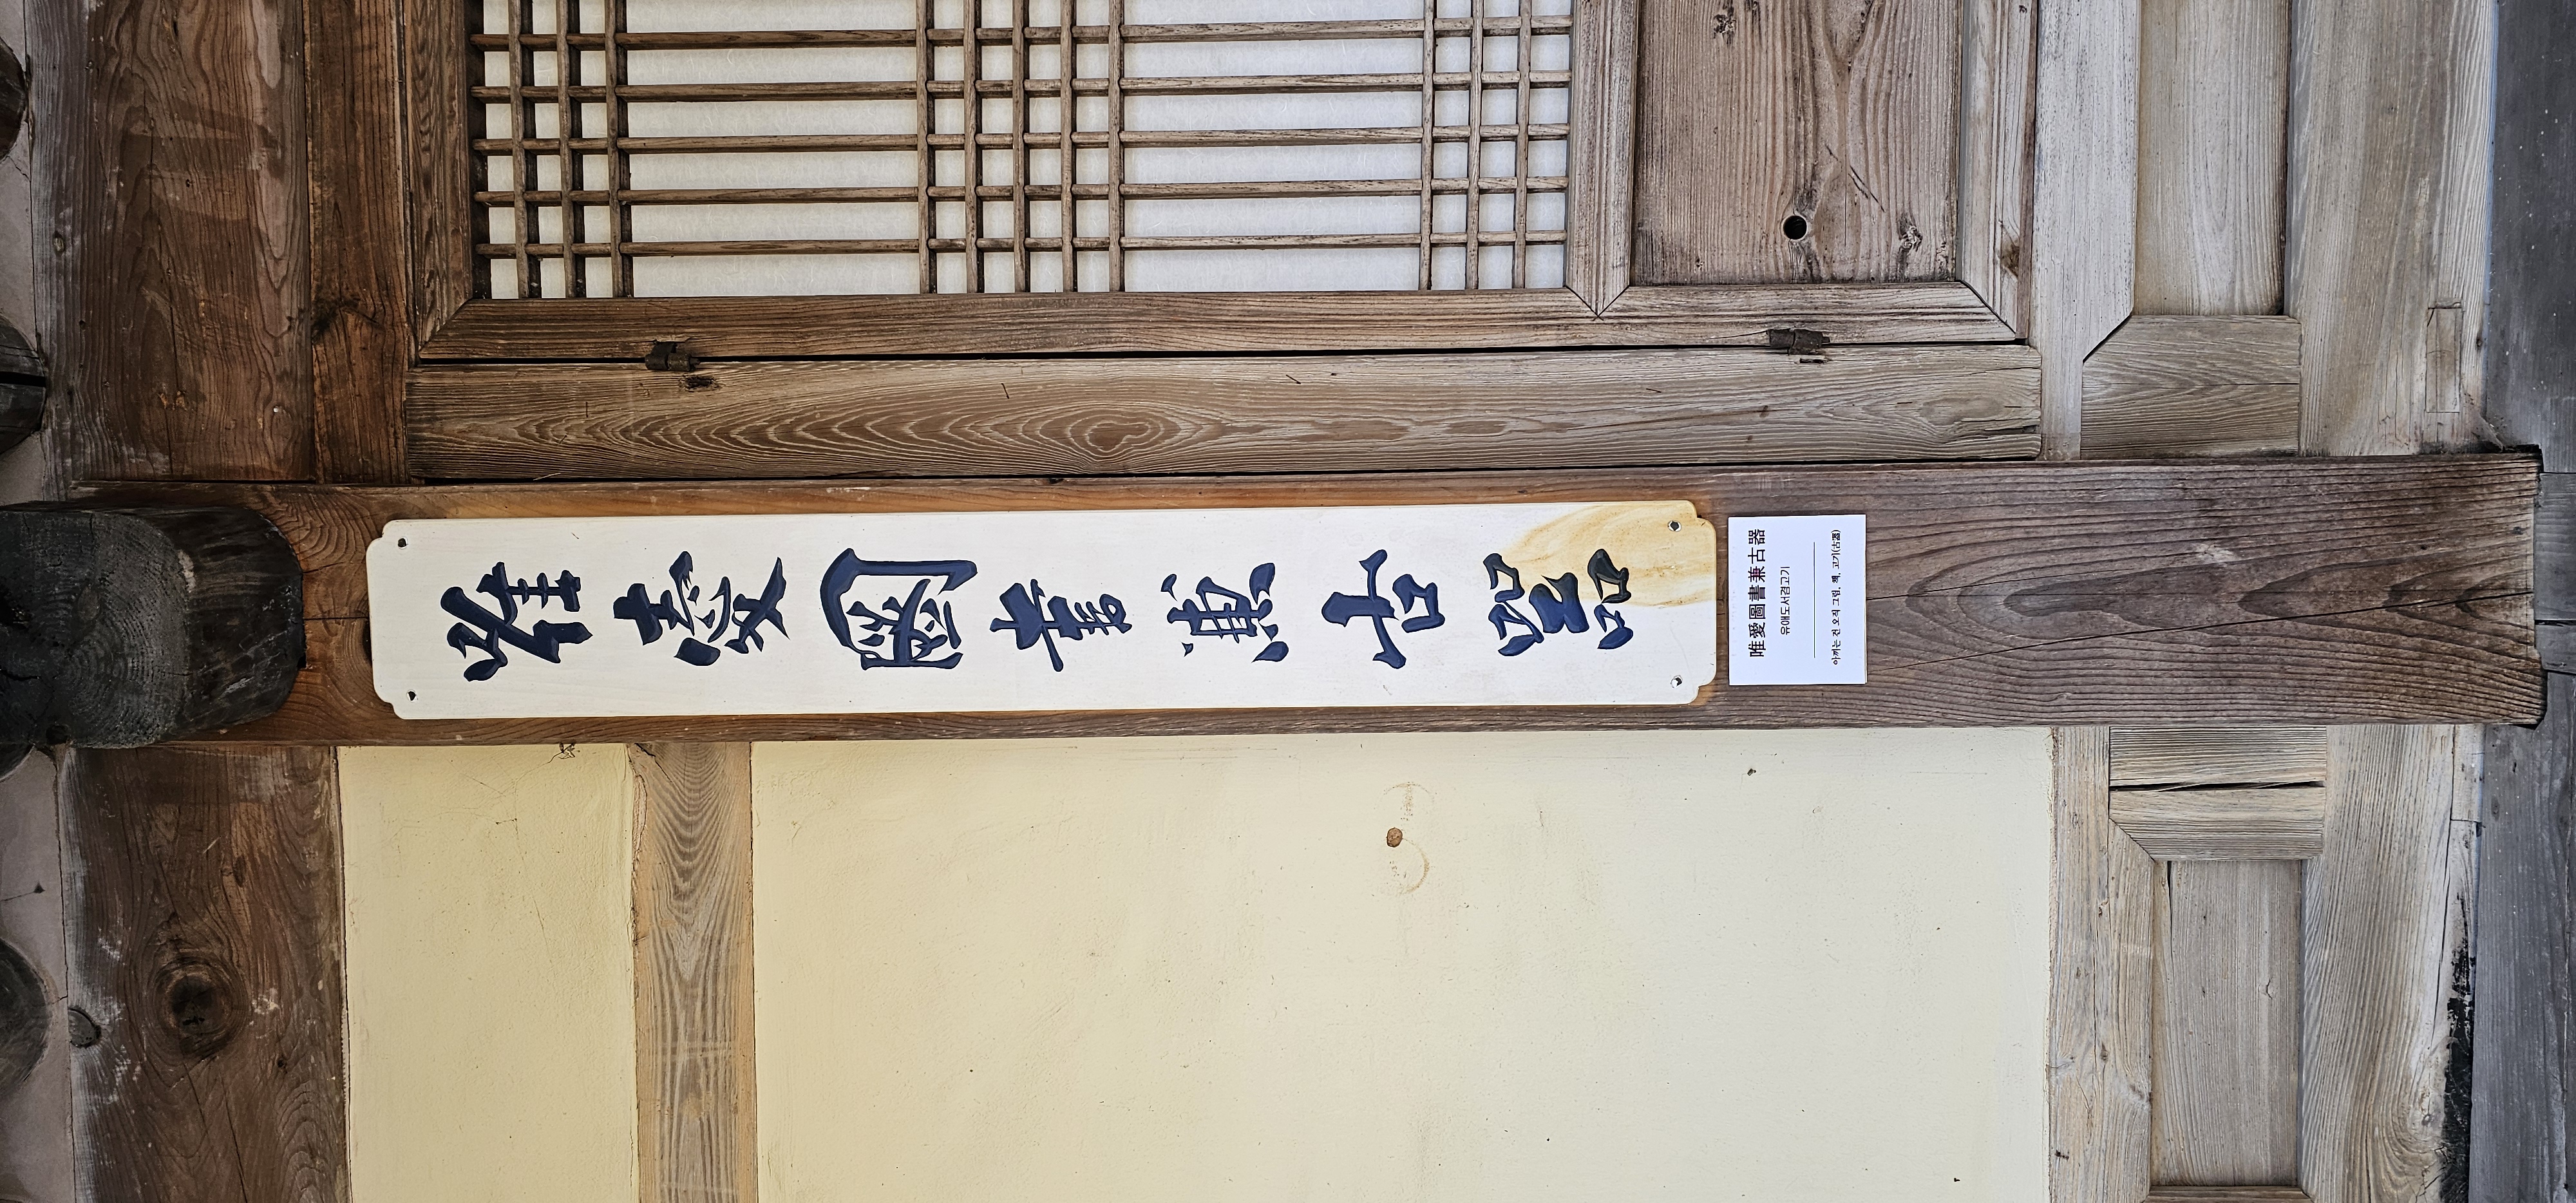 唯愛圖書兼古器
唯愛圖書兼古器
유애도서겸고기
아끼는 건 오직 그림, 책, 고기(古器)